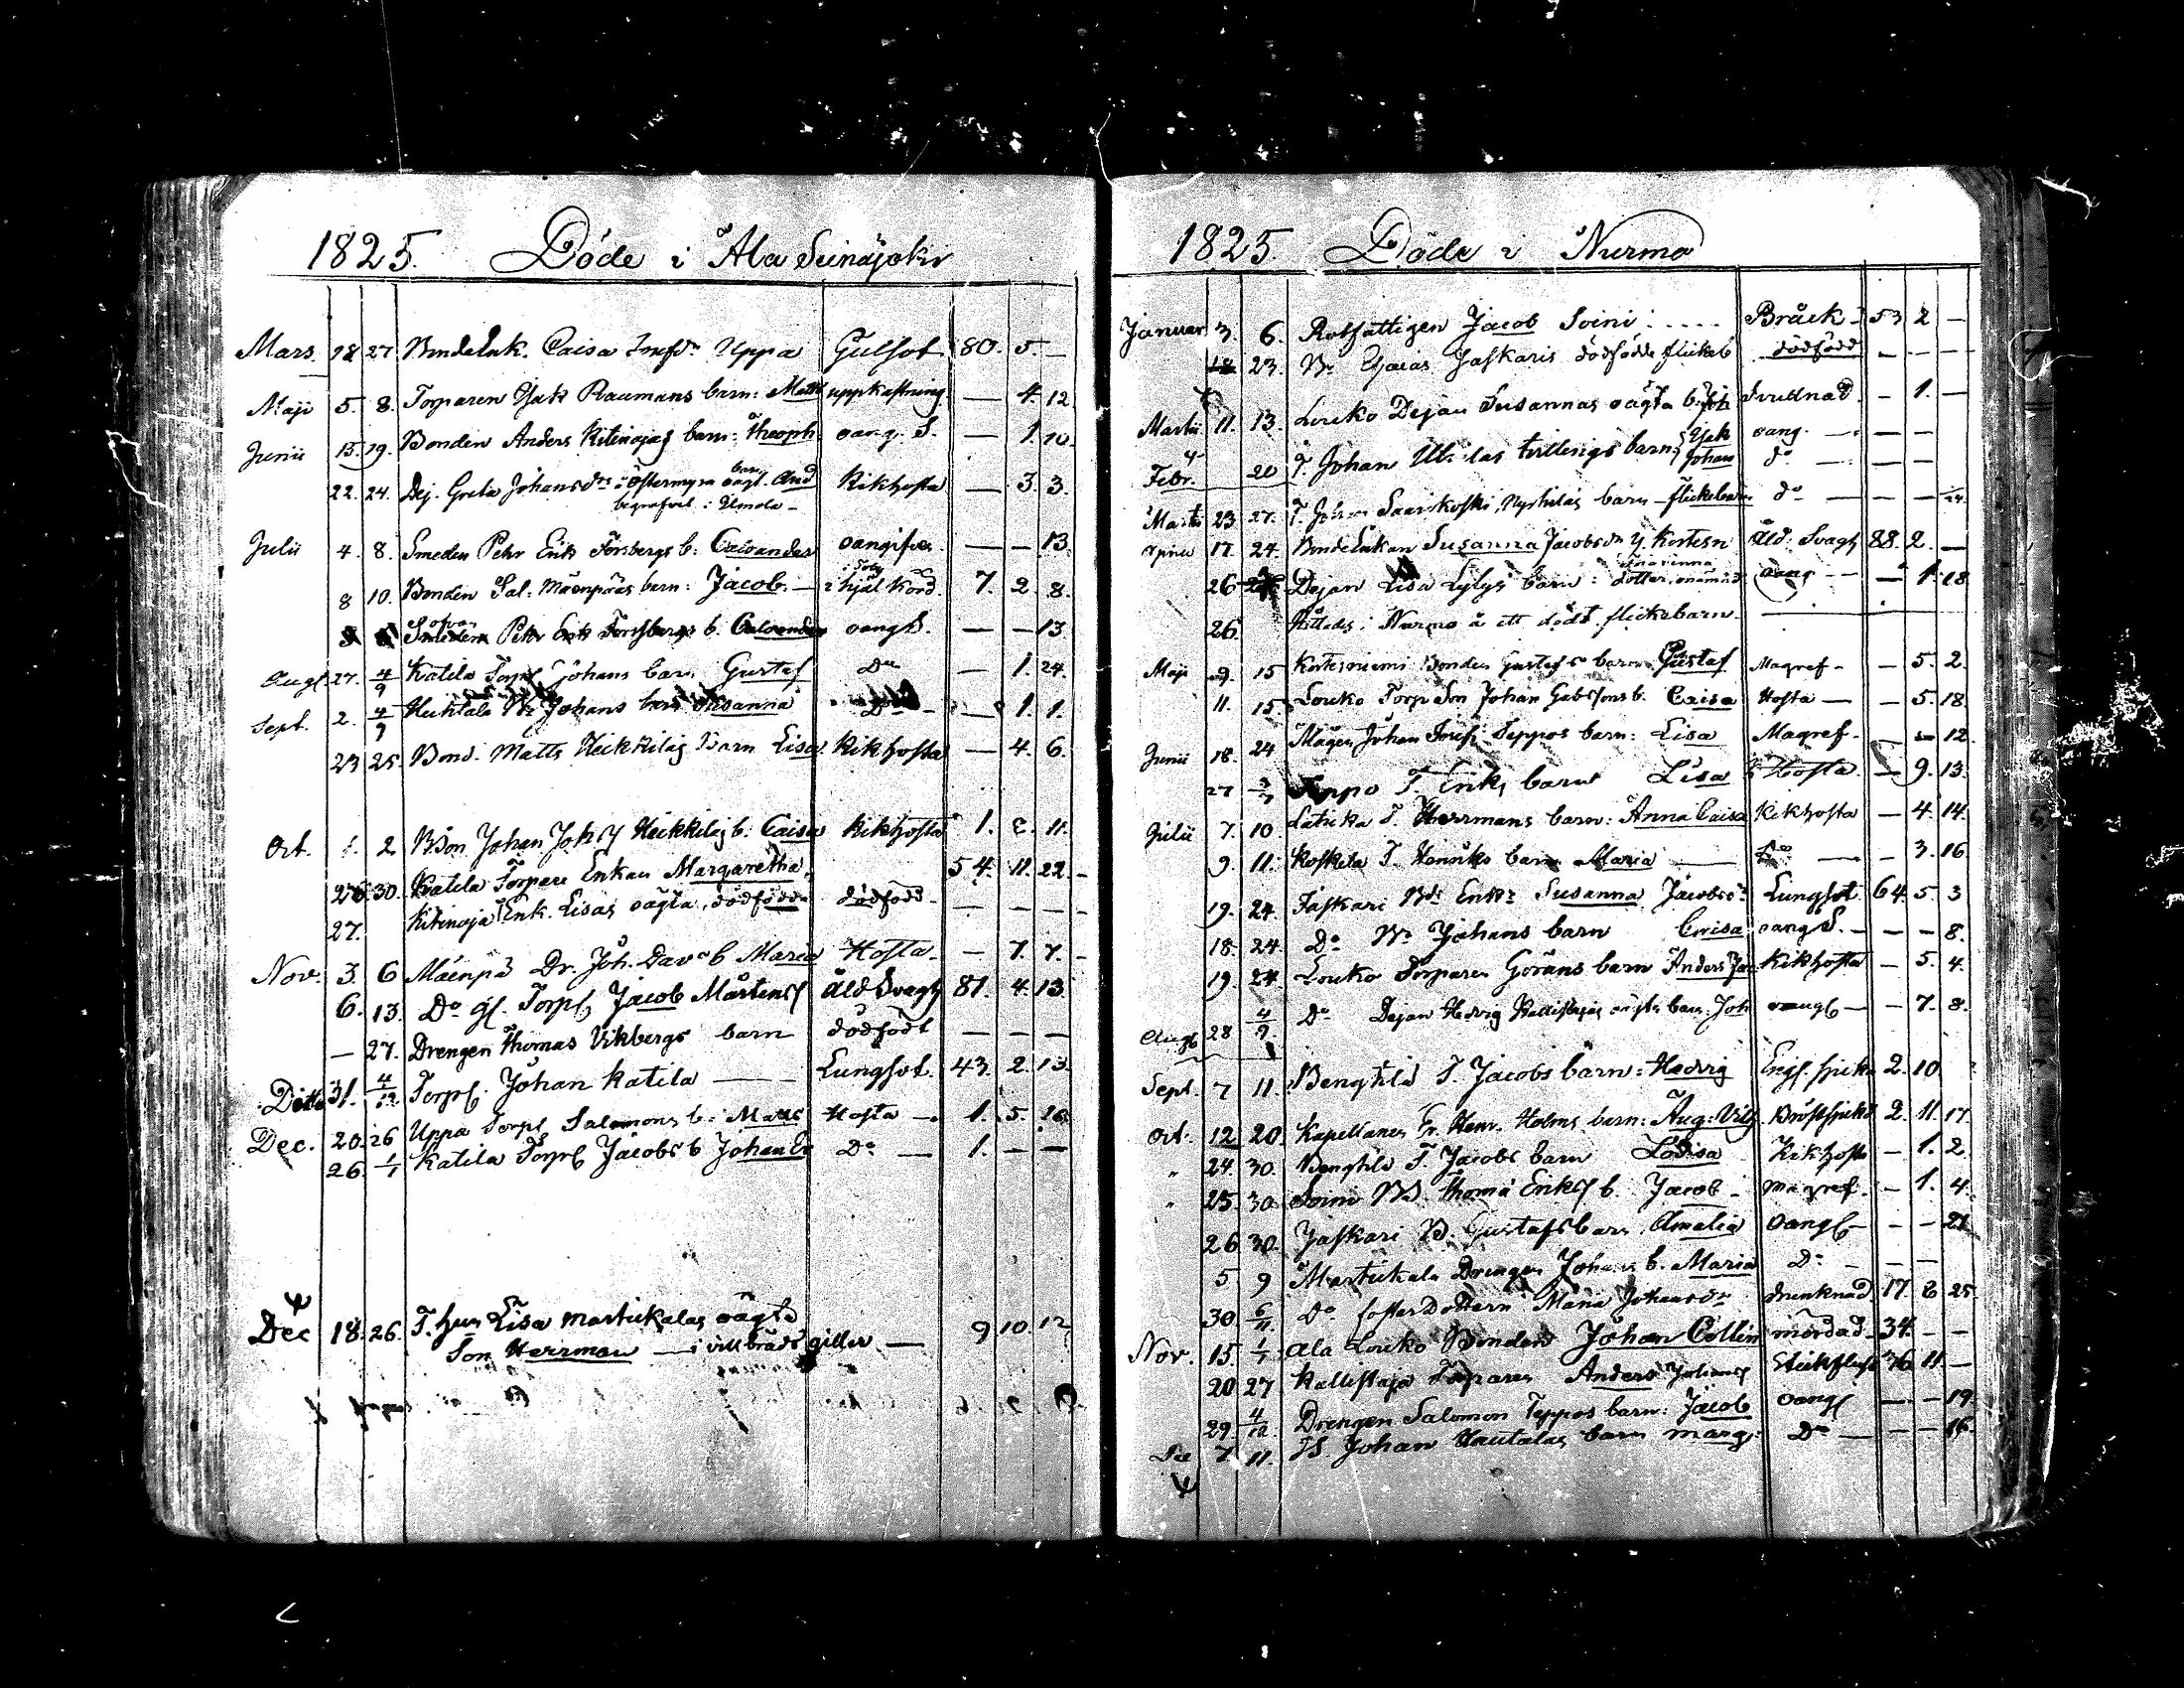 1825. Döde i Ala Seinäjoki
Mars. 18 27 BondeEnk. Caisa Josefsdr Uppa Gulsot 80. 5. —
Maji 5. 8. Torparen Isak Raumans barn: Matts uppkastning — 4. 12
Junii 15. 19. Bonden Anders Kitinojas barn: Theoph oang. S. — 1. 10
22. 24. Dej. Greta Johansdr i Östermyra oägt. barn And Kikhosta — 3. 3.
begrafvet i Ilmola —
Julii 4. 8. Smeden Pehr Erik Forsbergs b: Calvander oangifven — — 13.
8 10. Bonden Sal: Mäenpääs barn: Jacob — ihjäl körd. 7. 2. 8.
Smeden Pehr Erik Forsbergs b. Calvander oangS. — — 13
Aug. 27. 4/9 Katila Torp Johans barn Gustaf Do — 1. 24.
Sept. 2. 4/9 Huhtala Johans barn Susanna Do — 1. 1.
23 25. Bond. Matts Heikkiläs Barn Lisa Kikhosta — 4. 6.
Oct. 1. 2 Bon Johan Johs Heikkiläs b: Caisa Kikhosta 1. 2. 11.
26. 30. Katila Torpare Enkan Margaretha. 54. 11. 22.
27. Kitinoja Enk. Lisas oägta, dödfödda dödfödd — — —
Nov. 3. 6 Mäenpä Dr. Joh. Davs b Maria Hosta — 7. 7.
6. 13. Do gl. Torp Jacob Mårtens Åld Svagh 81. 4. 13
— 27. Drengen Thomas Vikbergs barn dödfödt — — —
Ditto 31. 4/12 Torp. Johan Katila — Lungsot. 43. 2. 13.
Dec. 20. 26 Uppa Torp Salomons b: Matts Hosta — 1. 5. 26
26. 1/1 Katila Torp Jacobs b Johan Er Do — 1. — —
Dec 18. 26. T. hus Lisa Martickalas oägta
Son Herrman — i villbråds giller — 9 10. 12
1825. Döde i Nurmo
Januar 3. 6. Rotfattigen Jacob Soini Bråck — 53 2 —
18 23. Bs Esaias Jaskaris dödfödde flickeb dödfödd — — —
Martii 11. 13. Louko Dejan Susannas oägta b: Joh Svullnad. — 1. —
Febr. 4 20 T. Johan tvillings barn Isak Johan oang. — — —
do — — —
Martii 23 27. T. Johan Saarikoski, Nyrhiläs barn — flickebarn do — — — 24.
April 17. 24. BondeEnkan Susanna Jacobsdr Y. Kortesn Åld. Svagh 88. 2. —
26 Dejan Lisa Lylys barn: dotter, onämnd oang — — 1. 18
26. Hittades i Nurmo å ett dödt flickebarn —
Maji 9. 15 Kortesniemi Bonden Gustafs barn Gustaf Magref — — 5. 2.
11. 15 Louko Torp Son Johan Gabrs b. Caisa Hosta — — 5. 18.
Junii 18. 24 Mågen Johan Josefs Seppos barn: Lisa Magref — — — 12
27 3/7 Seppo T. Eriks barn Lisa Hosta. — 9. 13.
Julii 7. 10. Latuka T. Herrmans barn: Anna Caisa Kikhosta — 4. 14.
9. 11. Koskela T. Henriks barn Maria — Do — — 3. 16
19. 24. Jaskari Bs Enka Susanna Jacobsdr Lungsot 64. 5. 3
18. 24 Do Bs Johans barn Caisa oangS. — — — 8.
19. 24 Louko Torparen Görans barn Anders Jac Kikhosta — 5. 4.
Aug. 28 4/9. Do Dejan Hedvig Kallistajas oägta barn: Joh oang — — 7. 8.
Sept. 7 11. Benghtila T. Jacobs barn: Hedvig Engl. sjuka 2. 10
Oct. 12 20. Kapellanen Hr. Henr. Holms barn: Aug: Vilh Bröstsjukd 2. 11. 17.
24. 30. Benghtila T. Jacobs barn Lovisa Kikhosta — 1. 2.
25. 30. Soini Bd. Thomä Eriks b. Jacob. Magref. — 1. 4.
26 30. Jaskari B. Gustafs barn Amalia oang — — — 21
5 9 Martickala Drengen Johans b. Maria Do — — —
30 6/11. Do foster Dottern Maria Johansdr drunknad 17. 6 25
Nov. 15. 1/1 Ala Louko Bonden Johan Collin mördad. 34. — —
20 27 Kallistaja Torparen Anders Johans Stickfluss 36 11 —
29 4/12. Drengen Salomon Seppos barn: Jacob oang — — 19.
Dec 7 11. B. Johan Hautalas barn Marg. Do — — — 15.